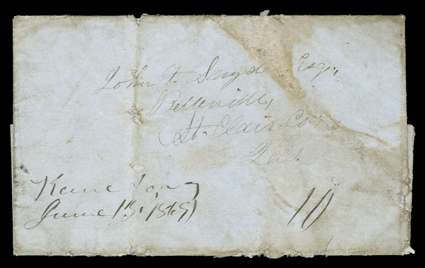 John F. Snyder Esqr.
Belleville,
St. Clair Co
Ills.
June 15, 1849
10